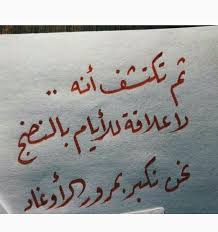 ثم تكتشف أنه ..
لا علاقة للأيام بالنضج
نحن نكبر بمرور الأوغاد